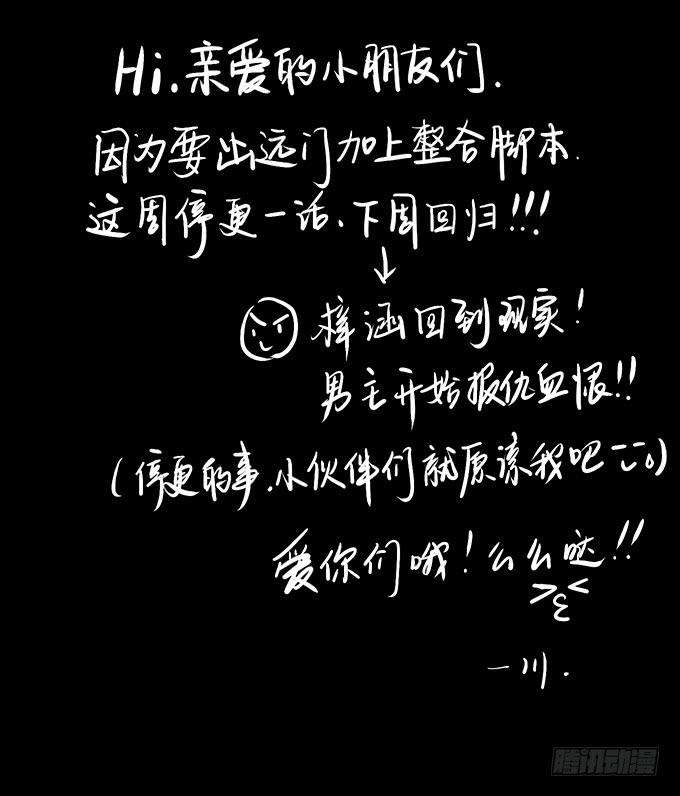 Hi.亲爱的小朋友们.
因为要出远门加上整合脚本.
这周停更一话、下周回归!!!
↓
梓涵回到现实!
男主开始报仇血恨!!
(停更的事.小伙伴们就原谅我吧 ￣ˍ￣o)
爱你们哦!么么哒!!
>3<
一川.
腾讯动漫